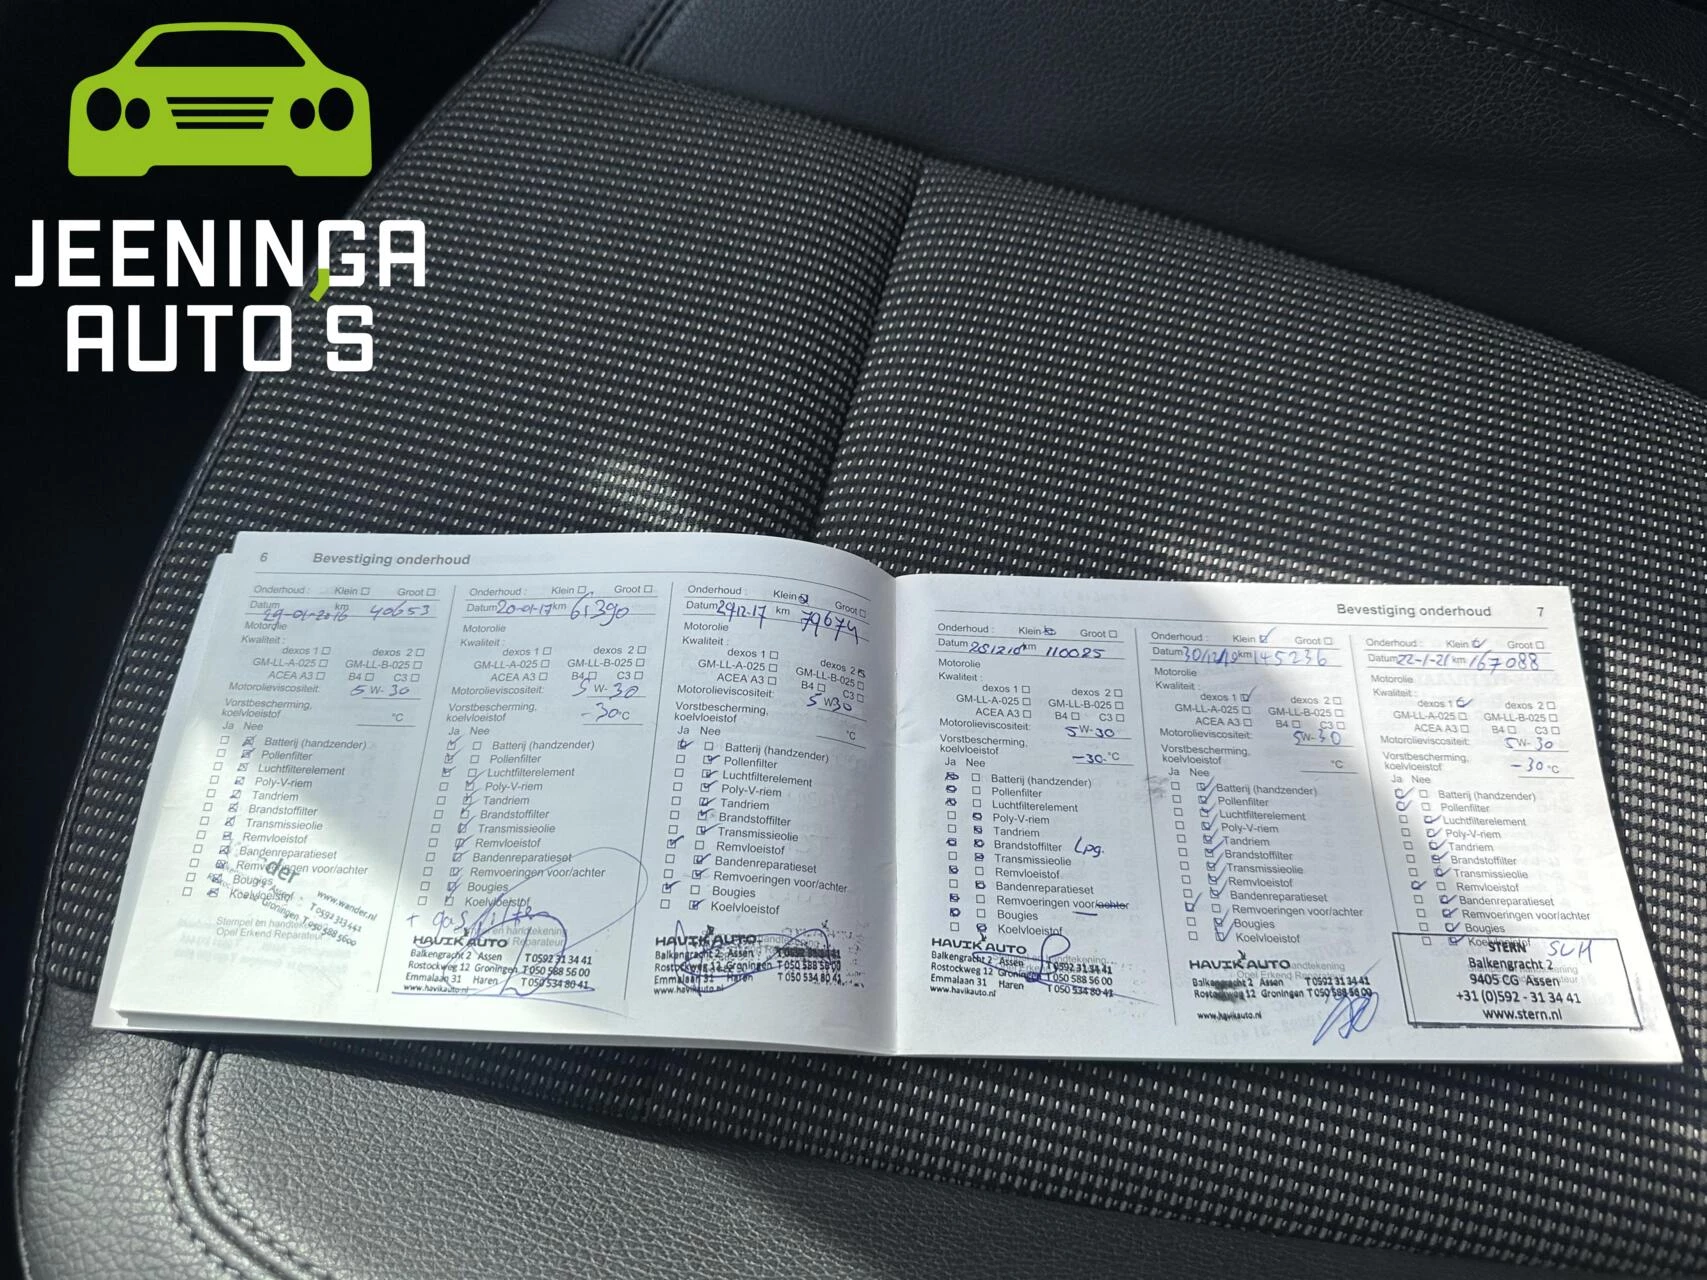 JEENINGA
AUTO'S
6 Bevestiging onderhoud
Onderhoud : Klein Groot
Datum 29-01-2016 km 40653
Motorolie
Kwaliteit :
dexos 1 dexos 2
GM-LL-A-025 GM-LL-B-025
ACEA A3 B4 C3
Motorolieviscositeit: 5W-30
Vorstbescherming,
koelvloeistof °C
Ja Nee
Batterij (handzender)
Pollenfilter
Luchtfilterelement
Poly-V-riem
Tandriem
Brandstoffilter
Transmissieolie
Remvloeistof
Bandenreparatieset
Remvoeringen voor/achter
Bougies
Koelvloeistof
www.wander.nl
Stempel en handtekening
Opel Erkend Reparateur
Onderhoud : Klein Groot
Datum 20-01-17 km 61390
Motorolie
Kwaliteit :
dexos 1 dexos 2
GM-LL-A-025 GM-LL-B-025
ACEA A3 B4 C3
Motorolieviscositeit: 5W-30
Vorstbescherming,
koelvloeistof -30°C
Ja Nee
Batterij (handzender)
Pollenfilter
Luchtfilterelement
Poly-V-riem
Tandriem
Brandstoffilter
Transmissieolie
Remvloeistof
Bandenreparatieset
Remvoeringen voor/achter
Bougies
Koelvloeistof
+ gasfilter
HAVIK AUTO
Balkengracht 2 Assen T 0592 31 34 41
Rostockweg 12 Groningen T 050 588 56 00
Emmalaan 31 Haren T 050 534 80 41
www.havikauto.nl
Onderhoud : Klein Groot
Datum 29-12-17 km 79674
Motorolie
Kwaliteit :
dexos 1 dexos 2
GM-LL-A-025 GM-LL-B-025
ACEA A3 B4 C3
Motorolieviscositeit: 5W30
Vorstbescherming,
koelvloeistof °C
Ja Nee
Batterij (handzender)
Pollenfilter
Luchtfilterelement
Poly-V-riem
Tandriem
Brandstoffilter
Transmissieolie
Remvloeistof
Bandenreparatieset
Remvoeringen voor/achter
Bougies
Koelvloeistof
HAVIK AUTO
Balkengracht 2 Assen
Rostockweg 12 Groningen T 050 588 56 00
Emmalaan 31 Haren T 050 534 80 41
www.havikauto.nl
Bevestiging onderhoud 7
Onderhoud : Klein Groot
Datum km 110025
Motorolie
Kwaliteit :
dexos 1 dexos 2
GM-LL-A-025 GM-LL-B-025
ACEA A3 B4 C3
Motorolieviscositeit: 5W-30
Vorstbescherming,
koelvloeistof -30°C
Ja Nee
Batterij (handzender)
Pollenfilter
Luchtfilterelement
Poly-V-riem
Tandriem
Brandstoffilter Lpg.
Transmissieolie
Remvloeistof
Bandenreparatieset
Remvoeringen voor/achter
Bougies
Koelvloeistof
HAVIK AUTO
Balkengracht 2 Assen T 0592 31 34 41
Rostockweg 12 Groningen T 050 588 56 00
Emmalaan 31 Haren T 050 534 80 41
www.havikauto.nl
Onderhoud : Klein Groot
Datum 30/12/19 km 145236
Motorolie
Kwaliteit :
dexos 1 dexos 2
GM-LL-A-025 GM-LL-B-025
ACEA A3 B4 C3
Motorolieviscositeit: 5W-30
Vorstbescherming,
koelvloeistof °C
Ja Nee
Batterij (handzender)
Pollenfilter
Luchtfilterelement
Poly-V-riem
Tandriem
Brandstoffilter
Transmissieolie
Remvloeistof
Bandenreparatieset
Remvoeringen voor/achter
Bougies
Koelvloeistof
HAVIK AUTO
Balkengracht 2 Assen T 0592 31 34 41
Rostockweg 12 Groningen T 050 588 56 00
www.havikauto.nl
Onderhoud : Klein Groot
Datum 22-1-21 km 167088
Motorolie
Kwaliteit :
dexos 1 dexos 2
GM-LL-A-025 GM-LL-B-025
ACEA A3 B4 C3
Motorolieviscositeit: 5W-30
Vorstbescherming,
koelvloeistof -30°C
Ja Nee
Batterij (handzender)
Pollenfilter
Luchtfilterelement
Poly-V-riem
Tandriem
Brandstoffilter
Transmissieolie
Remvloeistof
Bandenreparatieset
Remvoeringen voor/achter
Bougies
Koelvloeistof
STERN
Balkengracht 2
9405 CG Assen
+31 (0)592 - 31 34 41
www.stern.nl